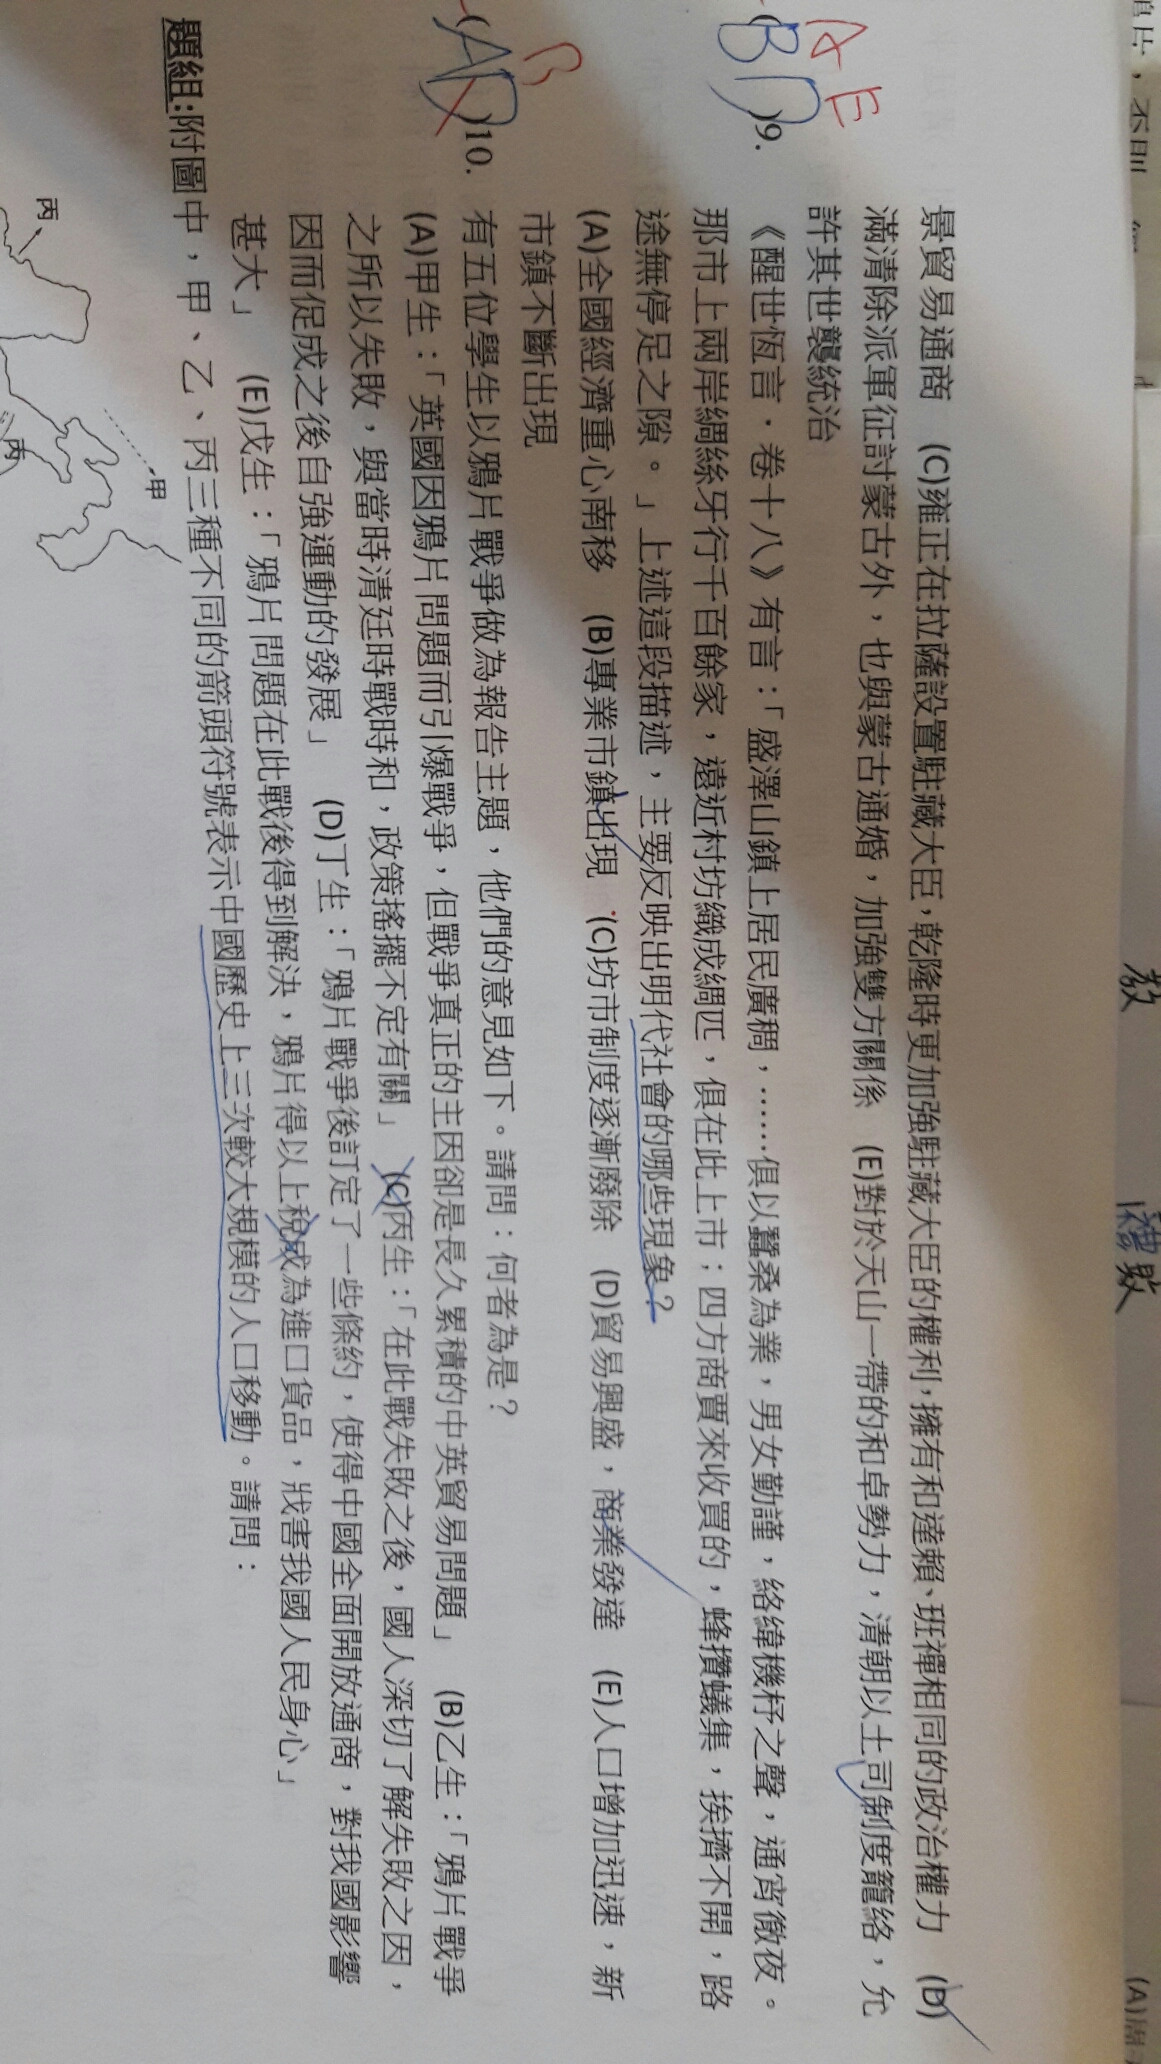 景貿易通商　(C)雍正在拉薩設置駐藏大臣，乾隆時更加強駐藏大臣的權利，擁有和達賴、班禪相同的政治權力　(D)
滿清除派軍征討蒙古外，也與蒙古通婚，加強雙方關係　(E)對於天山一帶的和卓勢力，清朝以土司制度籠絡，允
許其世襲統治
A E
(BD)9.
《醒世恆言．卷十八》有言：「盛澤山鎮上居民廣稠，……俱以蠶桑為業，男女勤謹，絡緯機杼之聲，通宵徹夜。
那市上兩岸綢絲牙行千百餘家，遠近村坊織成綢匹，俱在此上市；四方商賈來收買的，蜂攢蟻集，挨擠不開，路
途無停足之隙。」上述這段描述，主要反映出明代社會的哪些現象？
(A)全國經濟重心南移　(B)專業市鎮出現　(C)坊市制度逐漸廢除　(D)貿易興盛，商業發達　(E)人口增加迅速，新
市鎮不斷出現
B
(AD)10.
有五位學生以鴉片戰爭做為報告主題，他們的意見如下。請問：何者為是？
(A)甲生：「英國因鴉片問題而引爆戰爭，但戰爭真正的主因卻是長久累積的中英貿易問題」　(B)乙生：「鴉片戰爭
之所以失敗，與當時清廷時戰時和，政策搖擺不定有關」　(C)丙生：「在此戰失敗之後，國人深切了解失敗之因，
因而促成之後自強運動的發展」　(D)丁生：「鴉片戰爭後訂定了一些條約，使得中國全面開放通商，對我國影響
甚大」　(E)戊生：「鴉片問題在此戰後得到解決，鴉片得以上稅成為進口貨品，戕害我國人民身心」
題組:附圖中，甲、乙、丙三種不同的箭頭符號表示中國歷史上三次較大規模的人口移動。請問：
甲
丙
丙
教
(A)